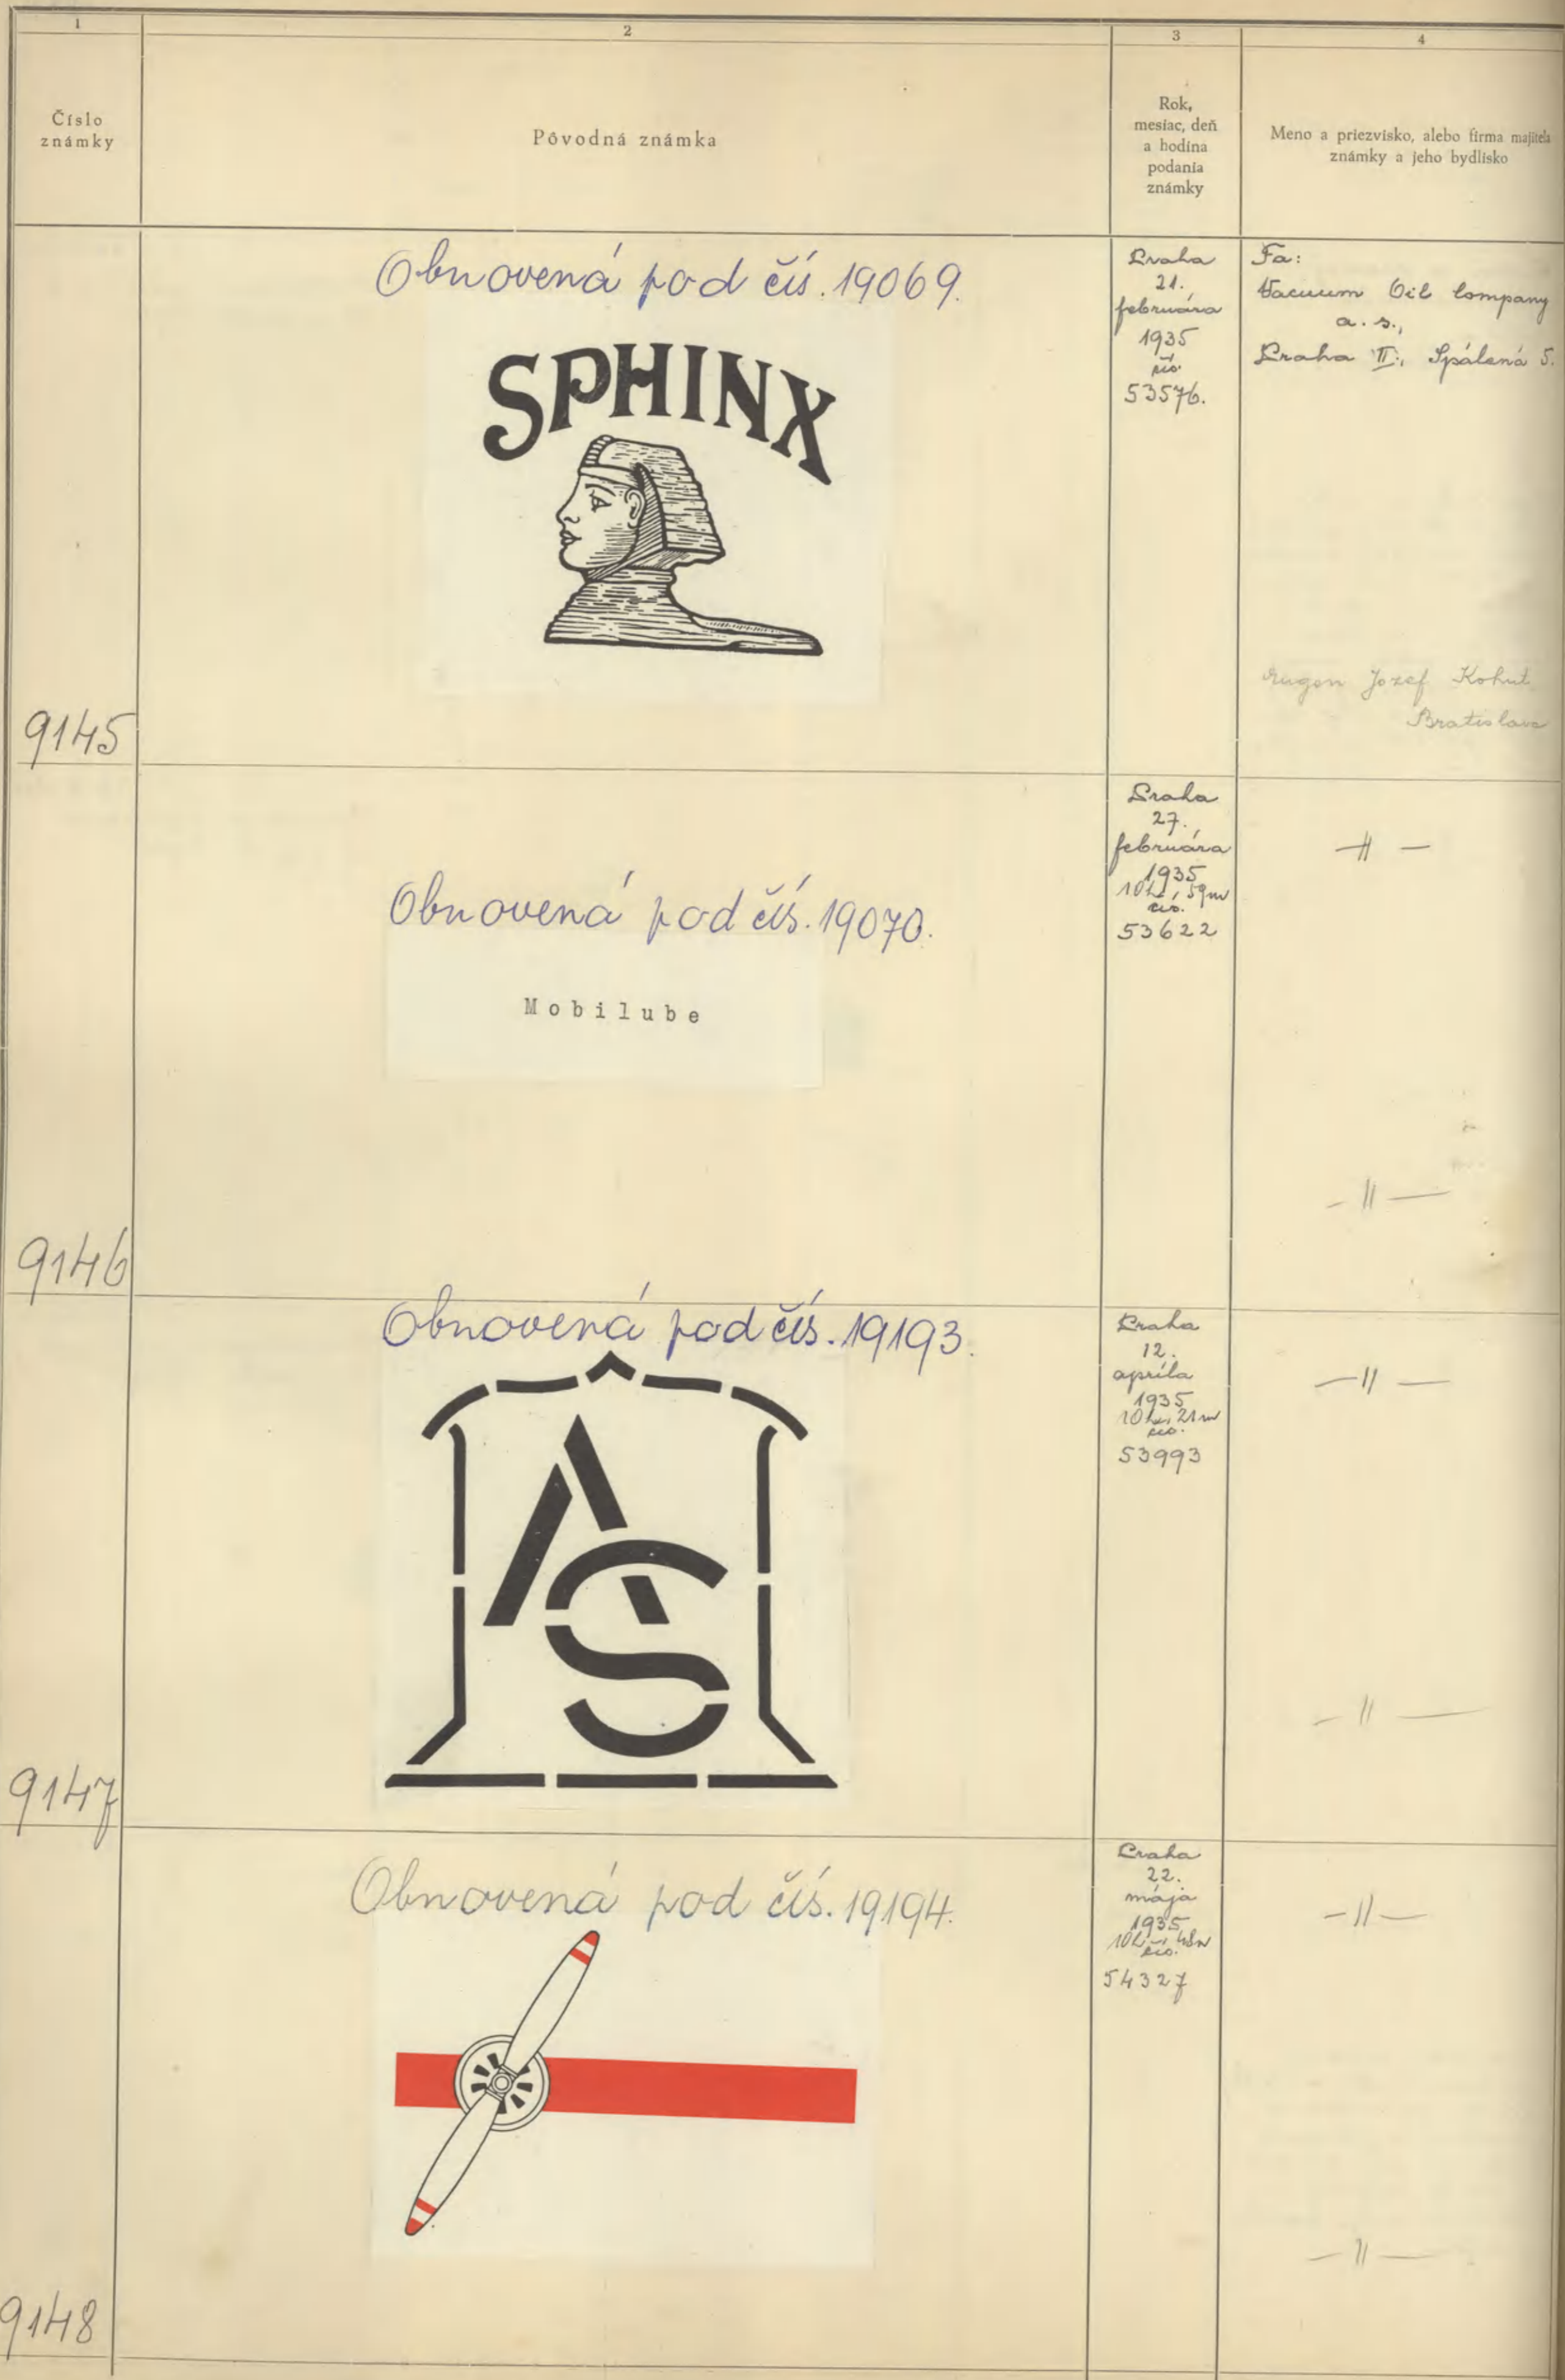 1
2
3
4
Číslo
známky
Pôvodná známka
Rok,
mesiac, deň
a hodina
podania
známky
Meno a priezvisko, alebo firma majiteľa
známky a jeho bydlisko
Obnovená pod čís. 19069.
SPHINX
9145
Praha
21.
februára
1935
čís.
53576.
Fa:
Vacuum Oil Company
a. s.,
Praha II., Spálená 5.
Jozef Kohut
Bratislava
Obnovená pod čís. 19070.
Mobilube
9146
Praha
27.
februára
1935
10 h., 59 m
čís.
53622
— 〃 —
— 〃 —
Obnovená pod čís. 19193.
AS
9147
Praha
12.
apríla
1935
10 h., 21 m
čís.
53993
— 〃 —
— 〃 —
Obnovená pod čís. 19194.
9148
Praha
22.
mája
1935
10 h., 48 m
čís.
54327
— 〃 —
— 〃 —